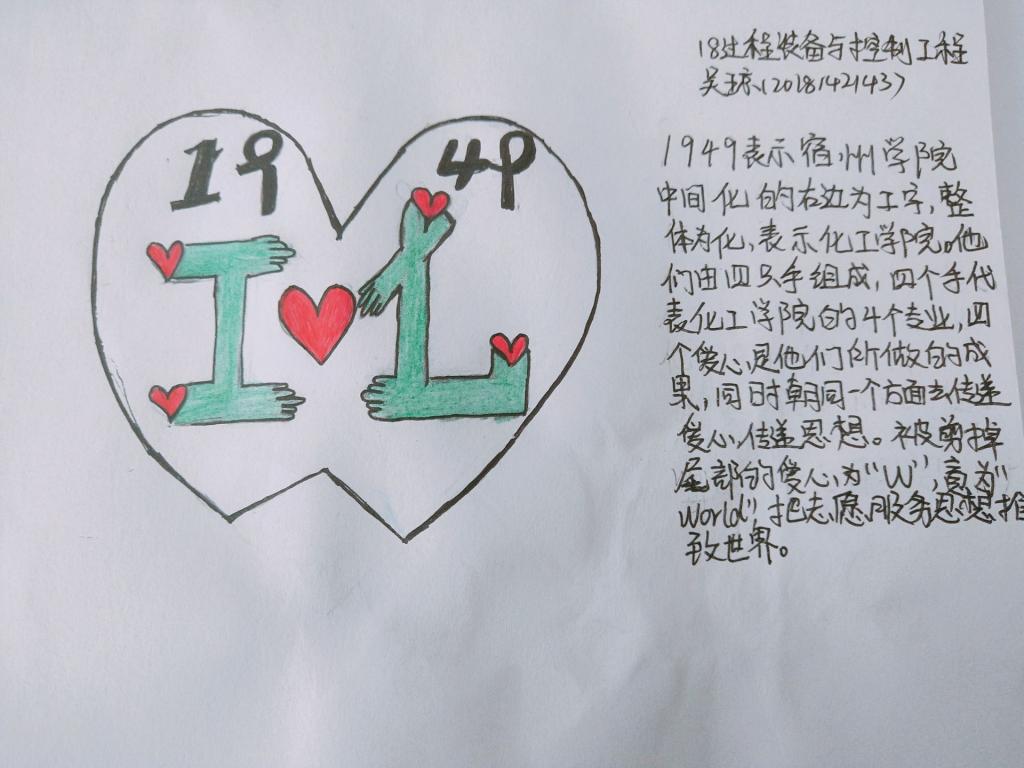 19 49
18过程装备与控制工程
吴琼(2018142143)
1949表示宿州学院
中间化的右边为工字,整
体为化,表示化工学院。他
们由四只手组成,四个手代
表化工学院的4个专业,四
个爱心是他们所做的成
果,同时朝同一个方面去传递
爱心,传递思想。被剪掉
尾部的爱心为“W”,意为“
World”,把志愿服务思想推
致世界。